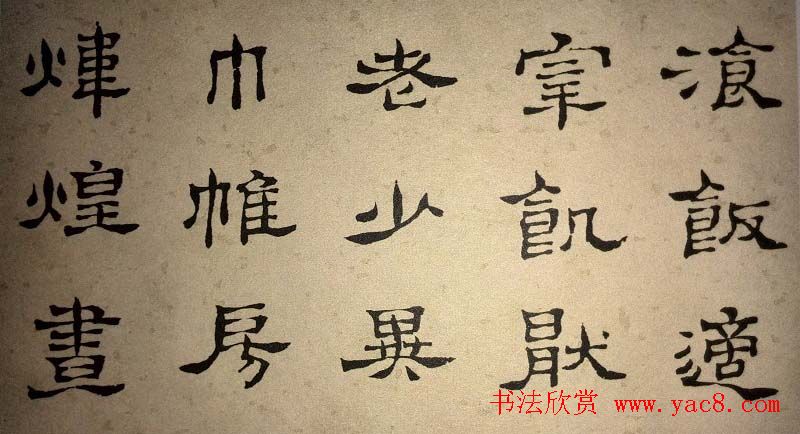 湌飯適
宰飢猒
老少異
巾帷房
煒煌晝
书法欣赏 www.yac8.com